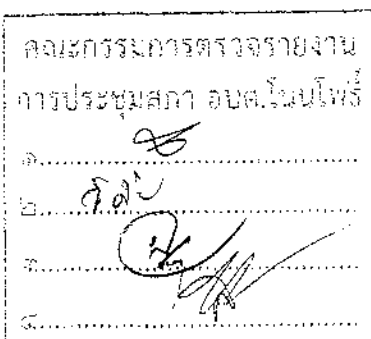 คณะกรรมการตรวจรายงาน
การประชุมสภา อบต.โนนโพธิ์
๑....................
๒....................
๓....................
๔....................